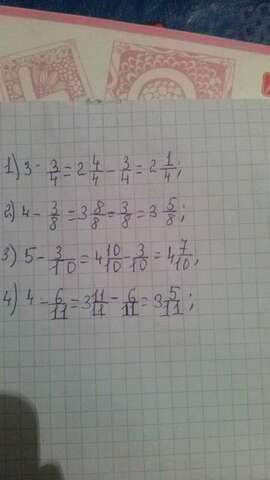 1) 3 - 3/4 = 2 4/4 - 3/4 = 2 1/4;
2) 4 - 3/8 = 3 8/8 = 3/8 = 3 5/8;
3) 5 - 3/10 = 4 10/10 - 3/10 = 4 7/10;
4) 4 - 6/11 = 3 11/11 - 6/11 = 3 5/11;